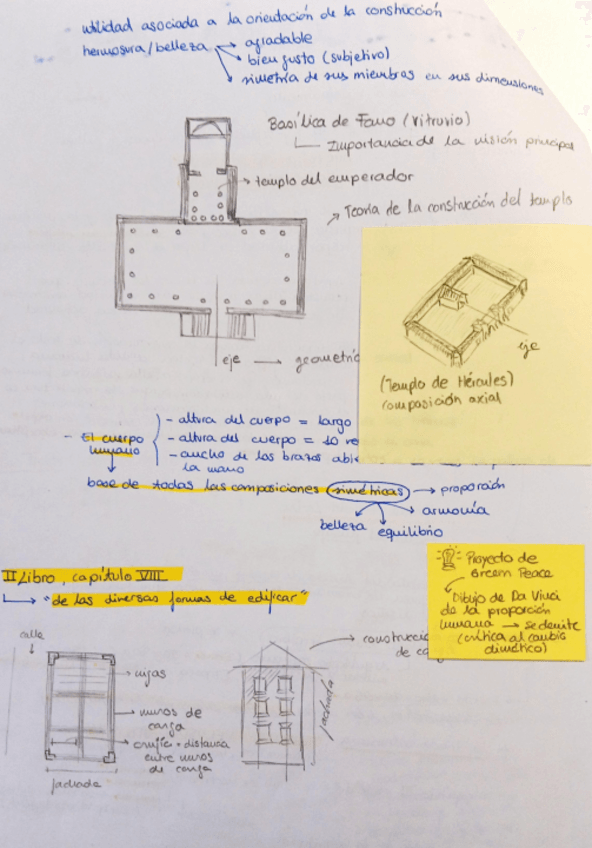 utilidad asociada a la orientación de la construcción
hermosura/belleza → agradable
bien gusto (subjetivo)
simetría de sus miembros en sus dimensiones
Basílica de Fano (Vitruvio)
Importancia de la visión principal
templo del emperador
Teoría de la construcción del templo
eje → geometric
eje
(Templo de Hércules)
composición axial
- El cuerpo humano
- altura del cuerpo = largo
- altura del cuerpo = 10
- ancho de los brazos
la mano
base de todas las composiciones simétricas → proporción
armonía
belleza
equilibrio
II Libro, capítulo VIII
"de las diversas formas de edificar"
Proyecto de
Green Peace
Dibujo de Da Vinci
de la proporción
humana → se derrite
(crítica al cambio
climático)
calle
vigas
muros de
carga
crujía = distancia
entre muros
de carga
fachada
construcci
de ca
fachada